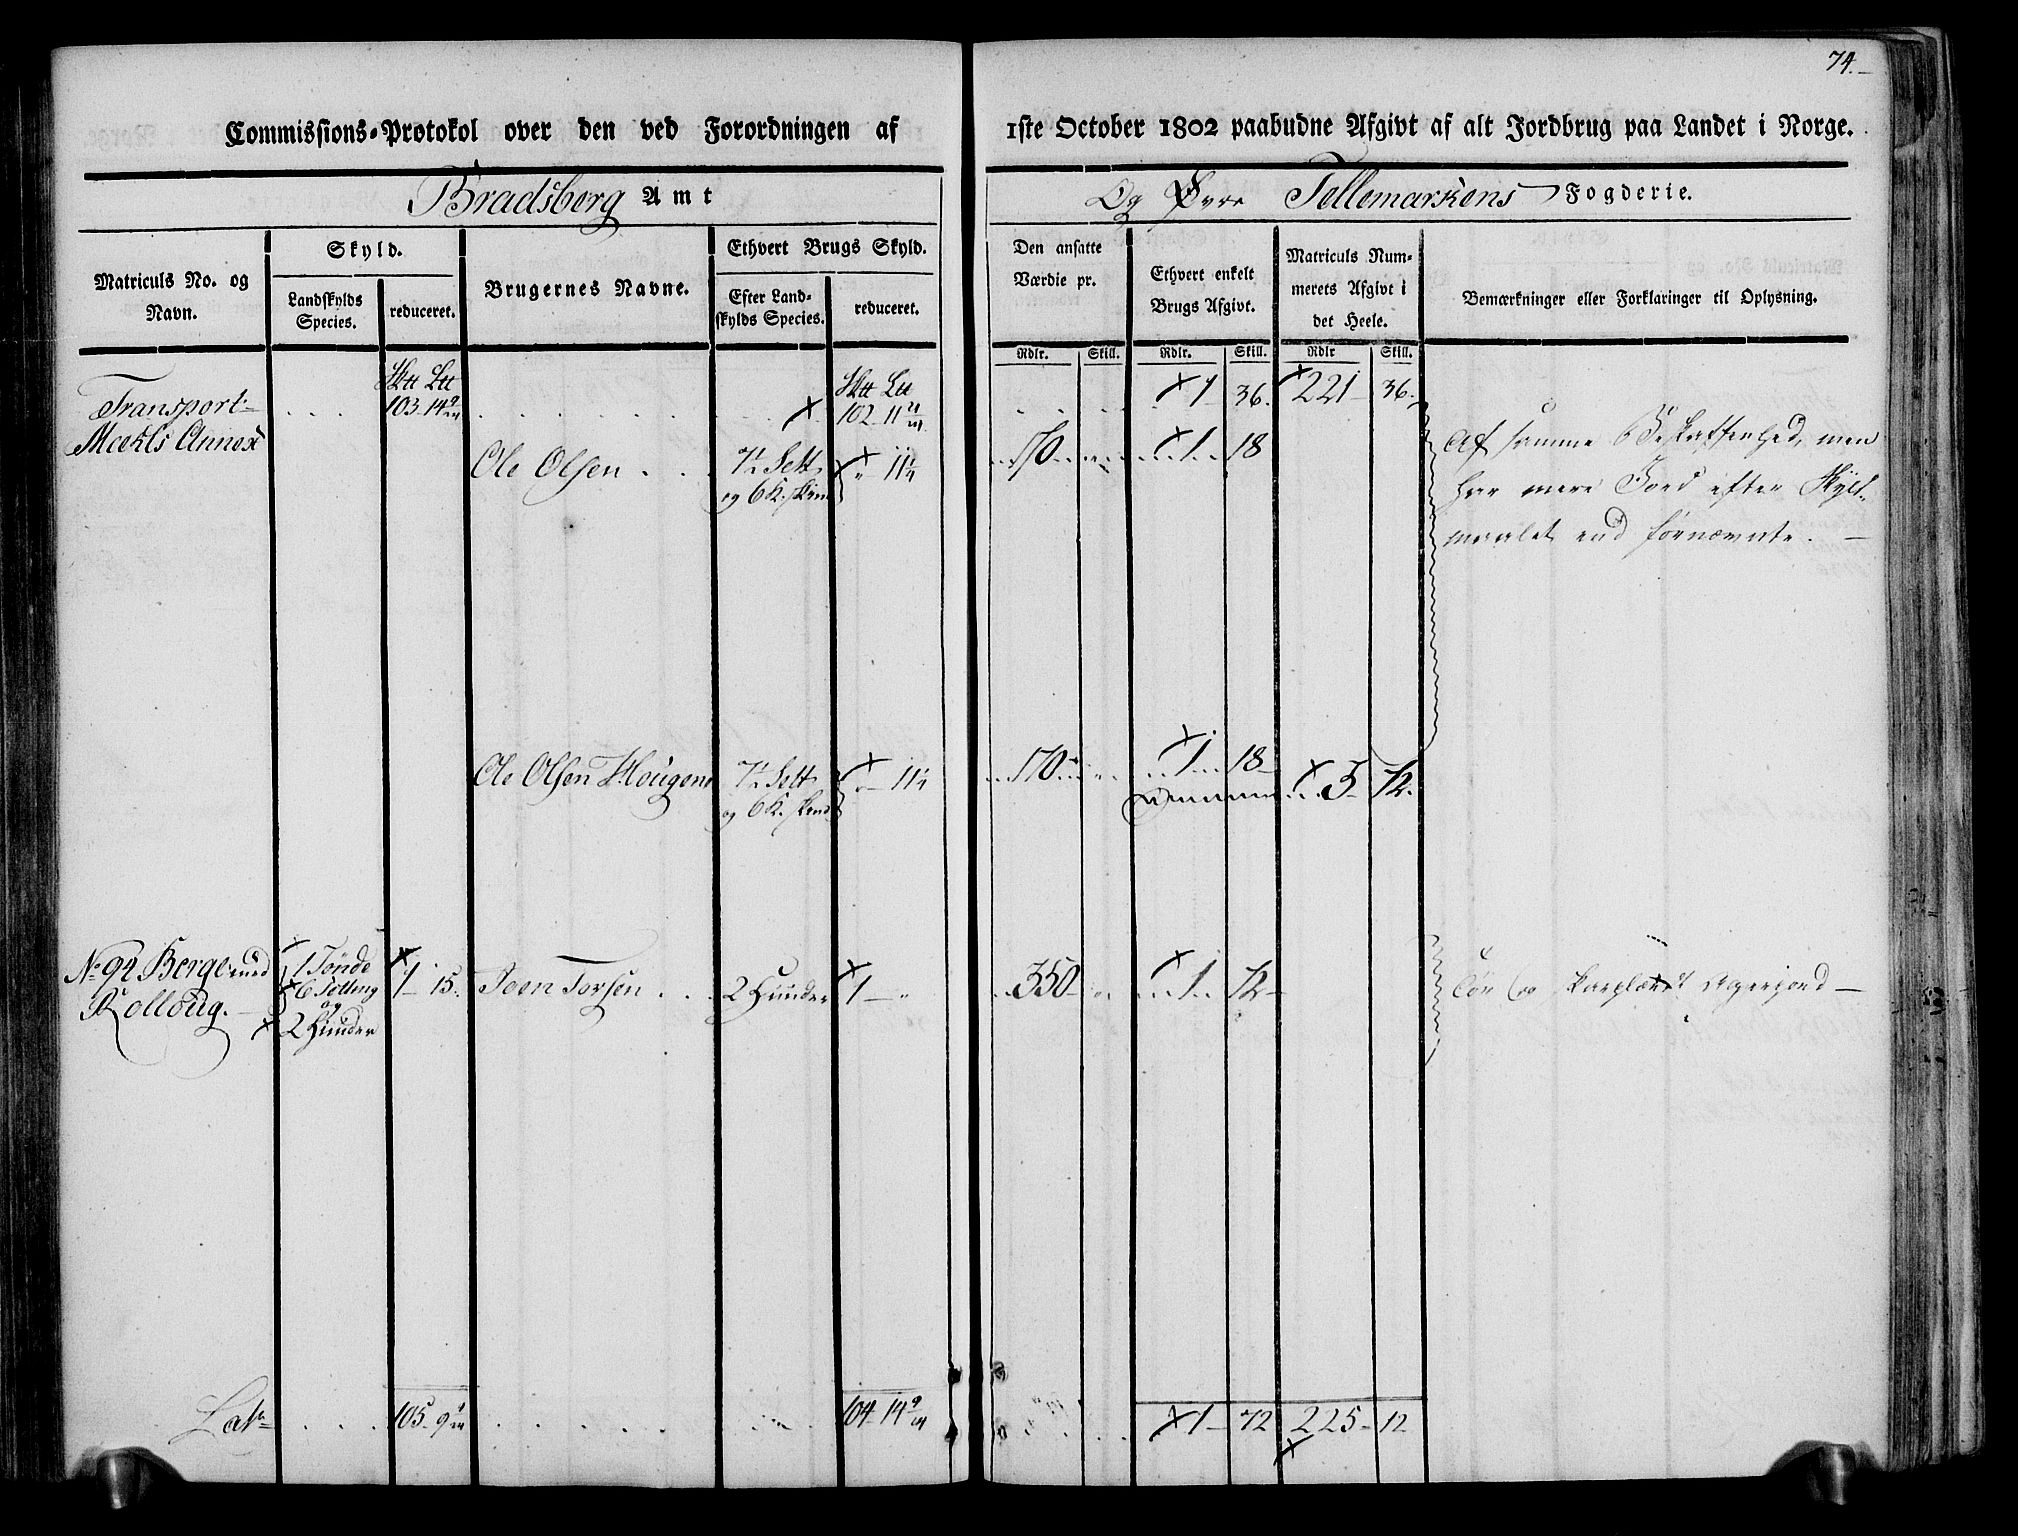 74.
Commissions-Protokol over den ved Forordningen af 1ste October 1802 paabudne Afgivt af alt Jordbrug paa Landet i Norge.
Bradsberg Amt Og Øvre Tellemarkens Fogderie.
Matriculs No. og Navn.
Skyld.
Landskylds Species.
reduceret.
Brugernes Navne.
Ethvert Brugs Skyld.
Efter Landskylds Species.
reduceret.
Den ansatte Værdie pr.
Ethvert enkelt Brugs Afgivt.
Matriculs Nummerets Afgivt i det Heele.
Bemærkninger eller Forklaringer til Oplysning.
Rdlr. Skill. Rdlr. Skill. Rdlr Skill.
Transport 103 14 102 11 1 36. 221 36.
Moelds Annex
Ole Olsen 7½ Sett 11¼ 170 1 18
og 6 K. skind
Af samme Beskaffenhed, men
har mere Jord efter Skyld-
maalet end fornævnte.
Ole Olsen Hougen 7½ Sett 11¼ 170 1 18 3 72.
og 6 K. skind
No 92 Berge med 1 Tønde 1 15. Joen Torsen 2 Hunder 1 350 1 72
Kolloug. 6 Setting
og
2 Hunder
Tør og skarplændt Agerjord
Lats 105 9 104 14 1 72 225 12